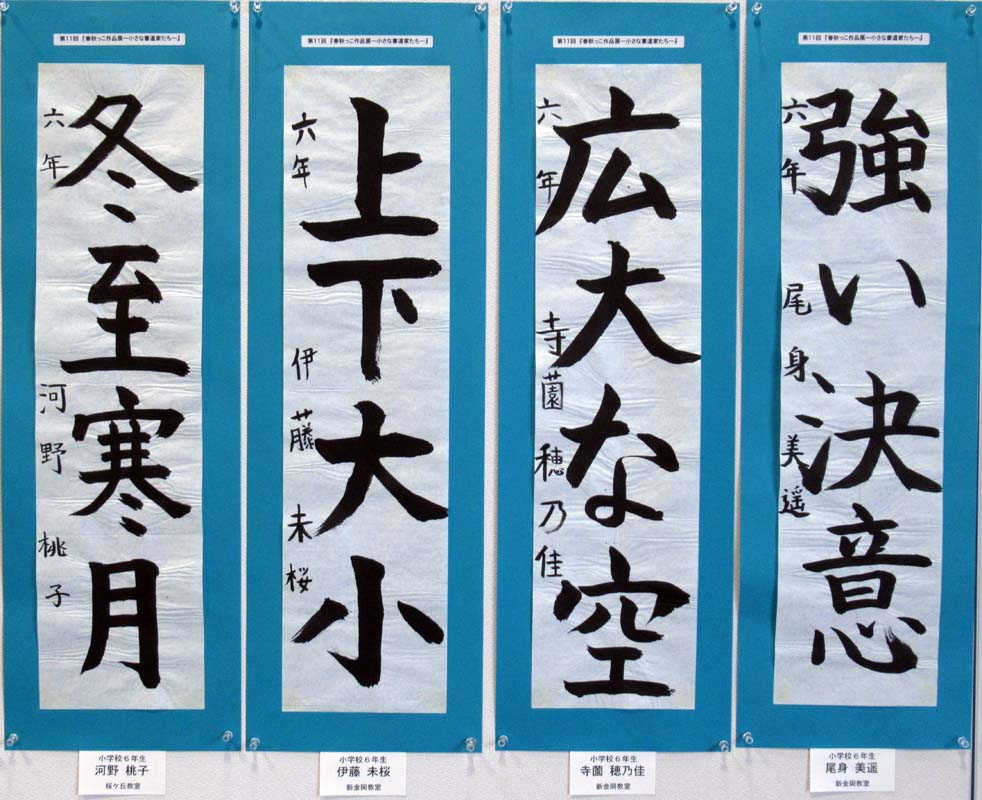 第11回『春秋っこ作品展ー小さな書道家たちー』
冬至寒月
六年 河野 桃子
小学校６年生
河野 桃子
桜ケ丘教室
第11回『春秋っこ作品展ー小さな書道家たちー』
上下大小
六年 伊藤 未桜
小学校６年生
伊藤 未桜
新金岡教室
第11回『春秋っこ作品展ー小さな書道家たちー』
広大な空
六年 寺薗 穂乃佳
小学校６年生
寺薗 穂乃佳
新金岡教室
第11回『春秋っこ作品展ー小さな書道家たちー』
強い決意
六年 尾身 美遥
小学校６年生
尾身 美遥
新金岡教室